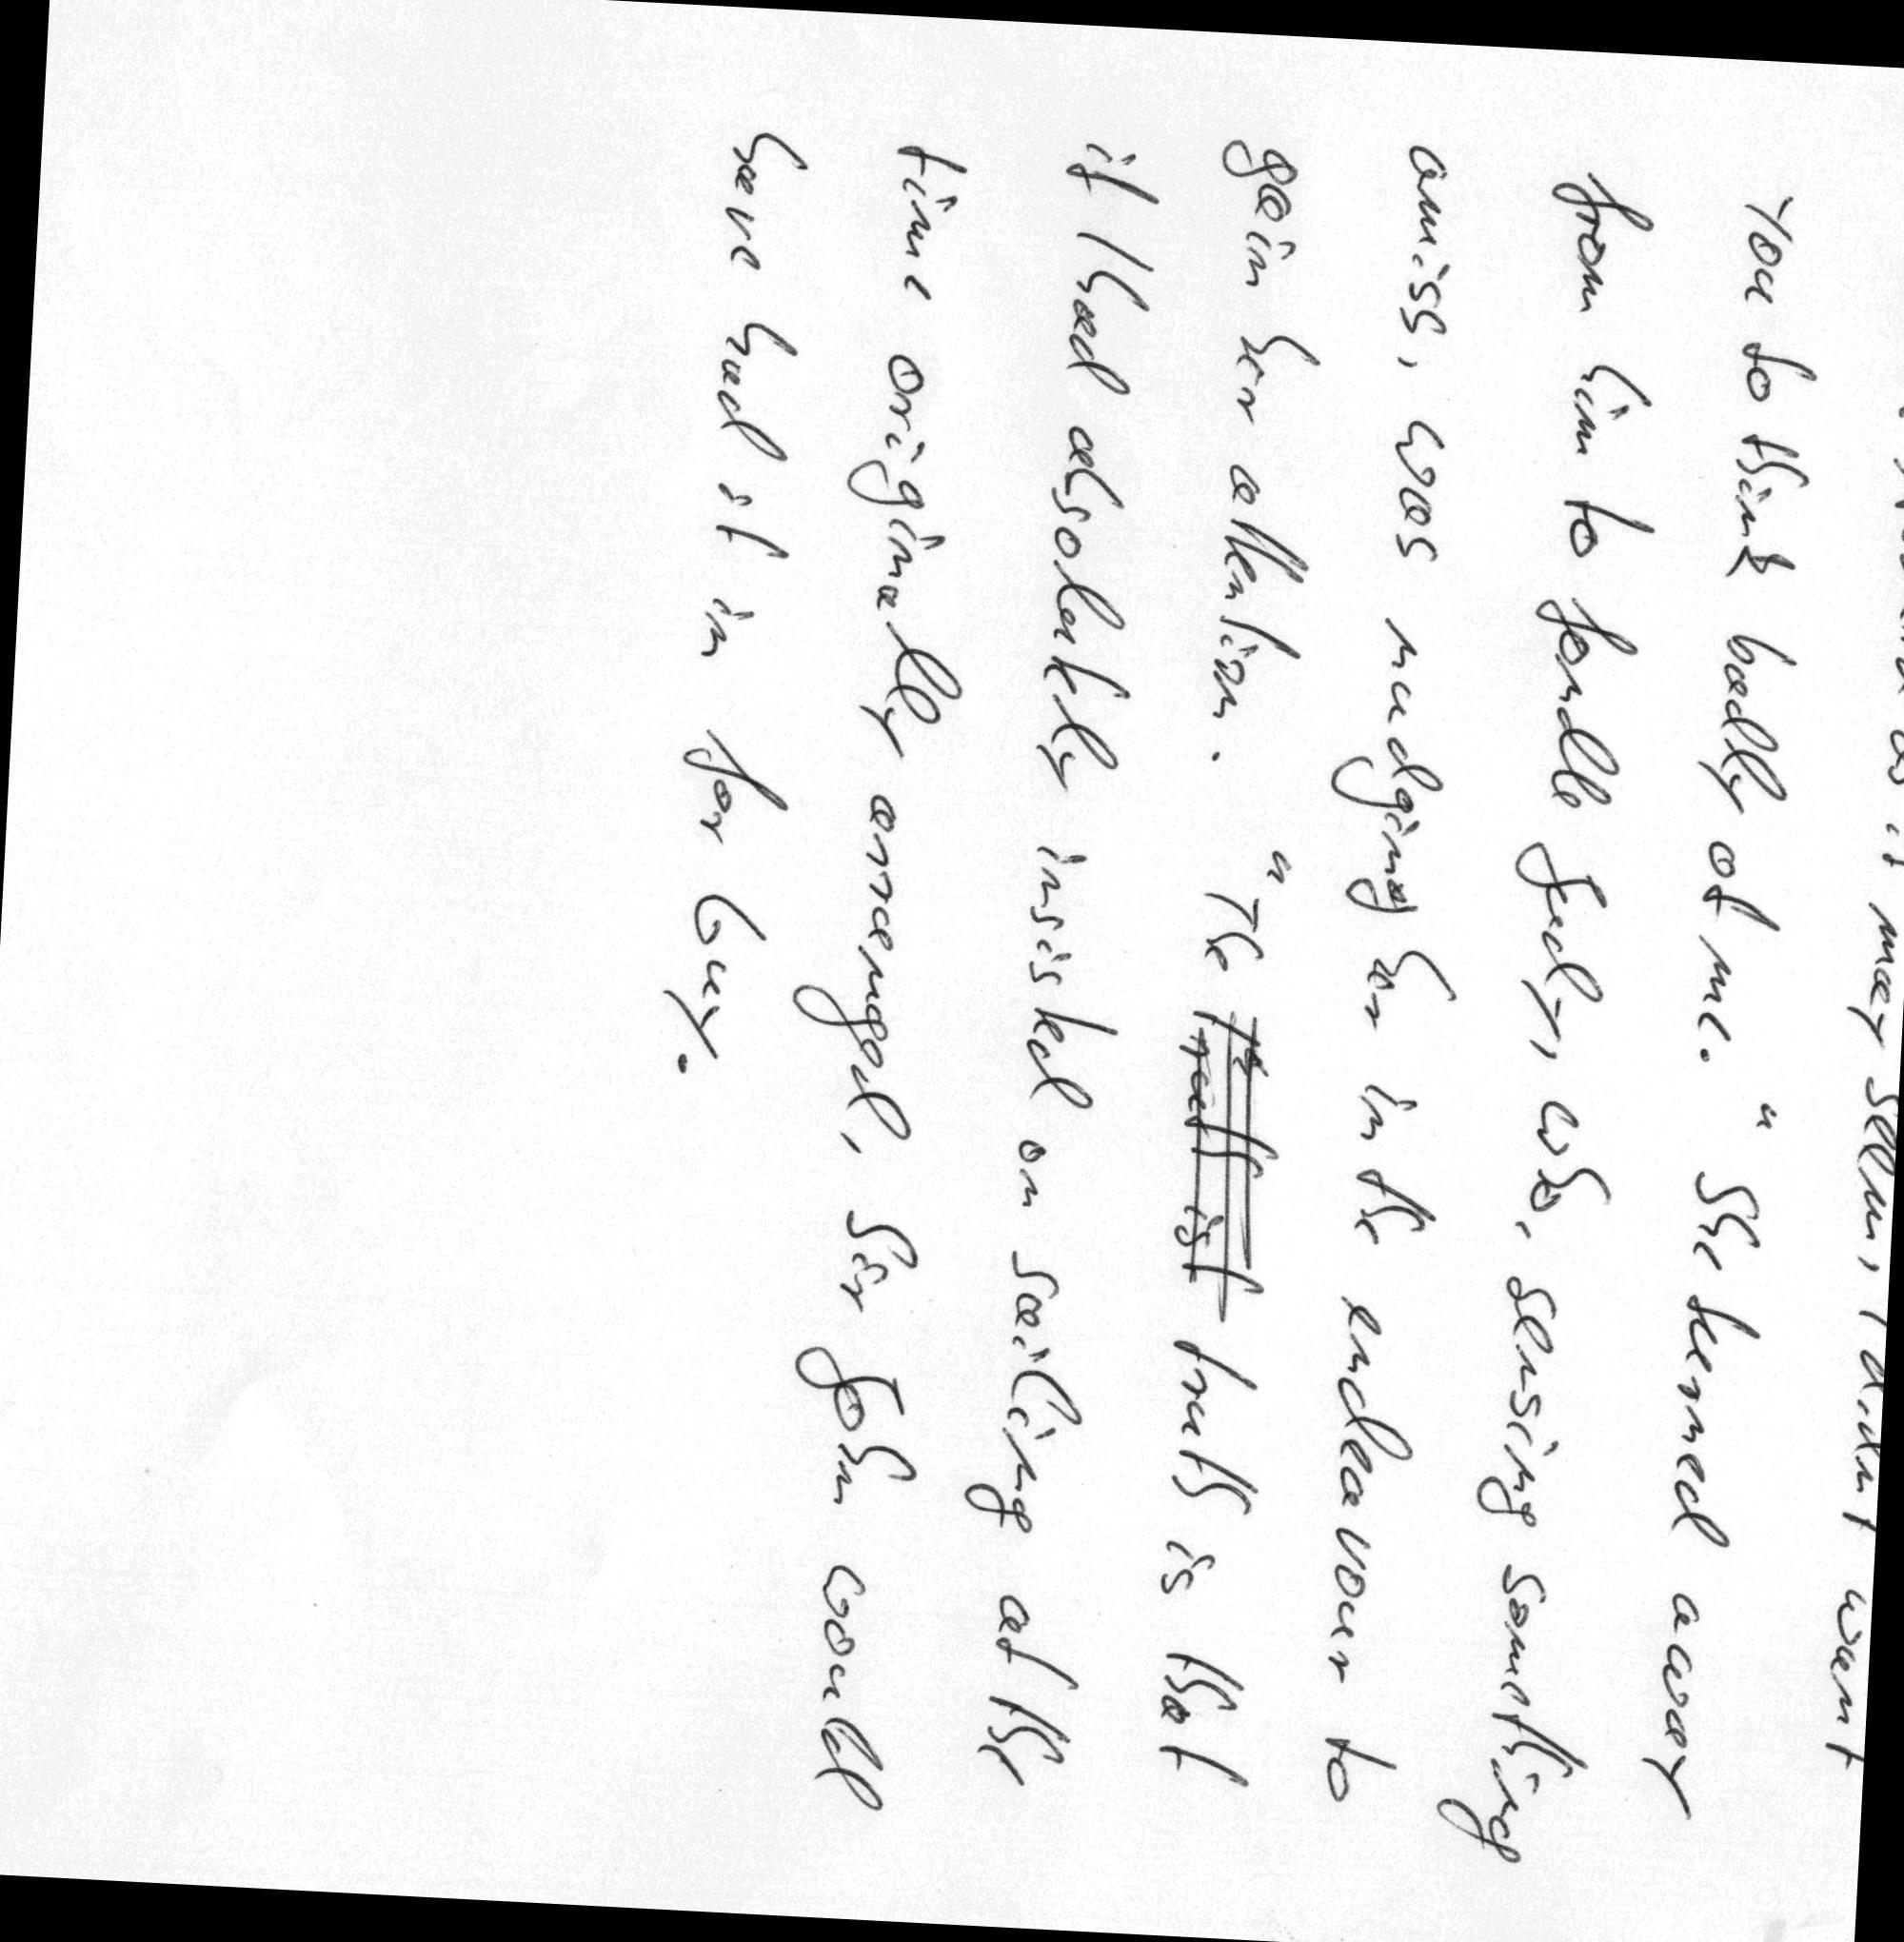 as it may seem, I didn't want
you to think badly of me." She turned away
from him to fondle Judy, who, sensing something
amiss, was nudging her in the endeavour to
gain her attention. "The truth is that
if I had absolutely insisted on sailing at the
time originally arranged, Sir John would
have had it in for Guy.